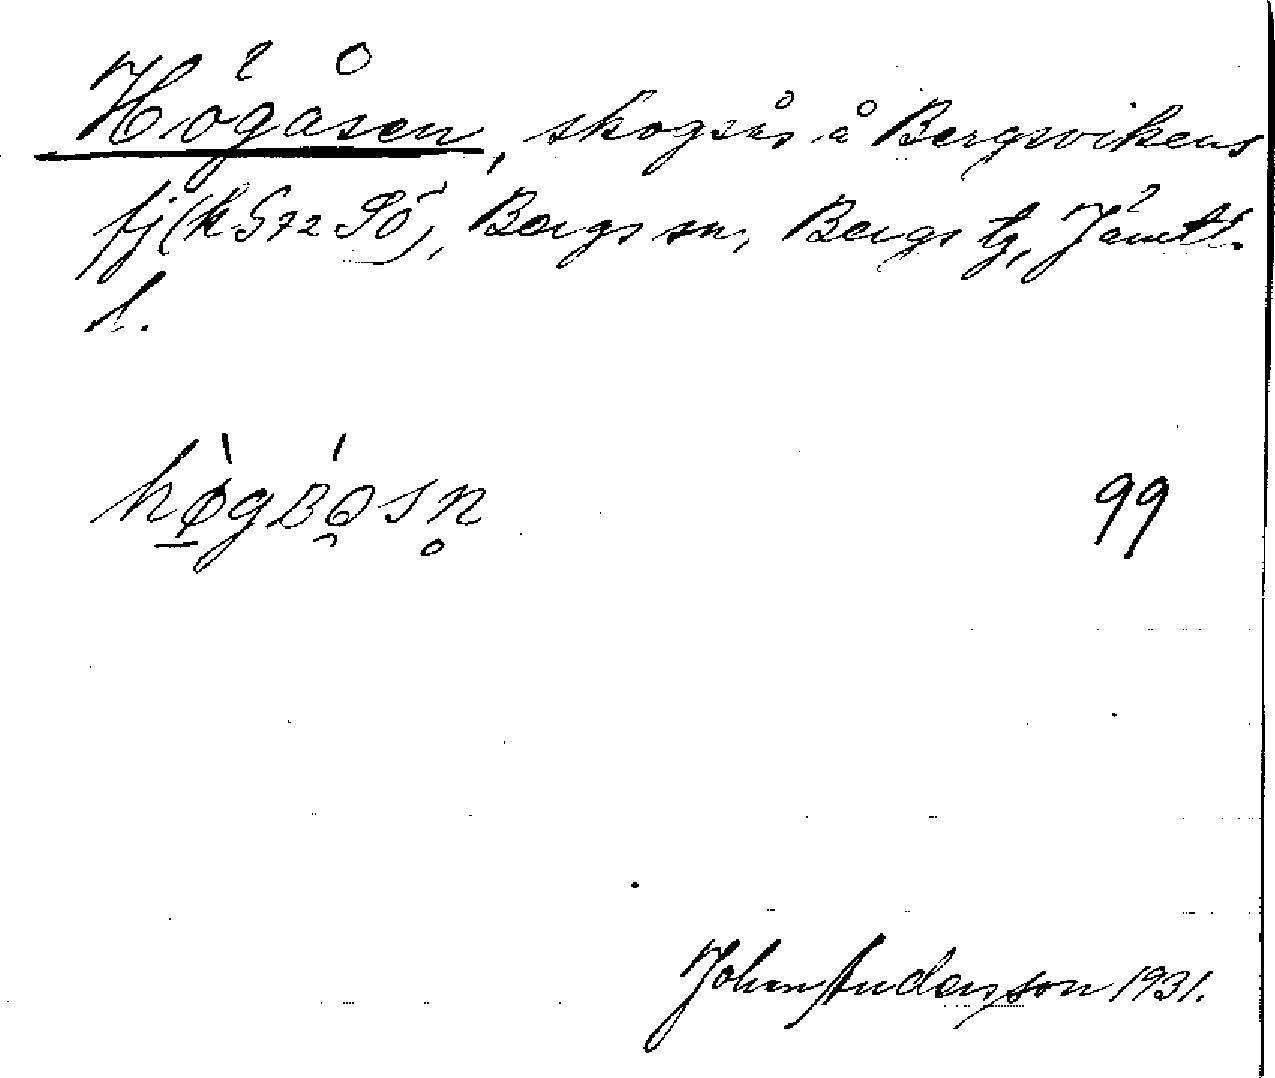 Högåsen, skogsås å Bergsvikens
fj (k S 72 SÖ), Bergs sn, Bergs tg, Jämtl.
l.
99
John Anderson 1931.